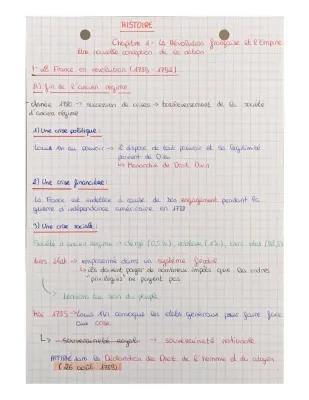 HISTOIRE
Chapitre 1 - La Révolution française et l'Empire
Une nouvelle conception de la nation
I- La France en révolution (1789 - 1792)
A) fin de l'ancien régime
Année 1780 → succession de crises → bouleversement de la société
d'ancien régime
1) Une crise politique :
Louis XVI au pouvoir → il dispose de tout pouvoir et sa légitimité
parvient de Dieu
↳ Monarchie de Droit Divin
2) Une crise financière :
La France est endettée à cause de son engagement pendant la
guerre d'indépendance américaine en
3) Une crise sociale :
Société d'ancien régime → clergé (0,5%), noblesse tiers état
tiers état → emprisonné dans un système féodal
↳ ils doivent payer de nombreux impôts que les ordres
"privilégiés" ne payent pas
tensions au sein du peuple
Louis XVI convoque les états généraux pour faire face
aux crise
↳ souveraineté royale → souveraineté nationale
dans la Déclaration des Droit de l'homme et du citoyen
(26 août 1789)